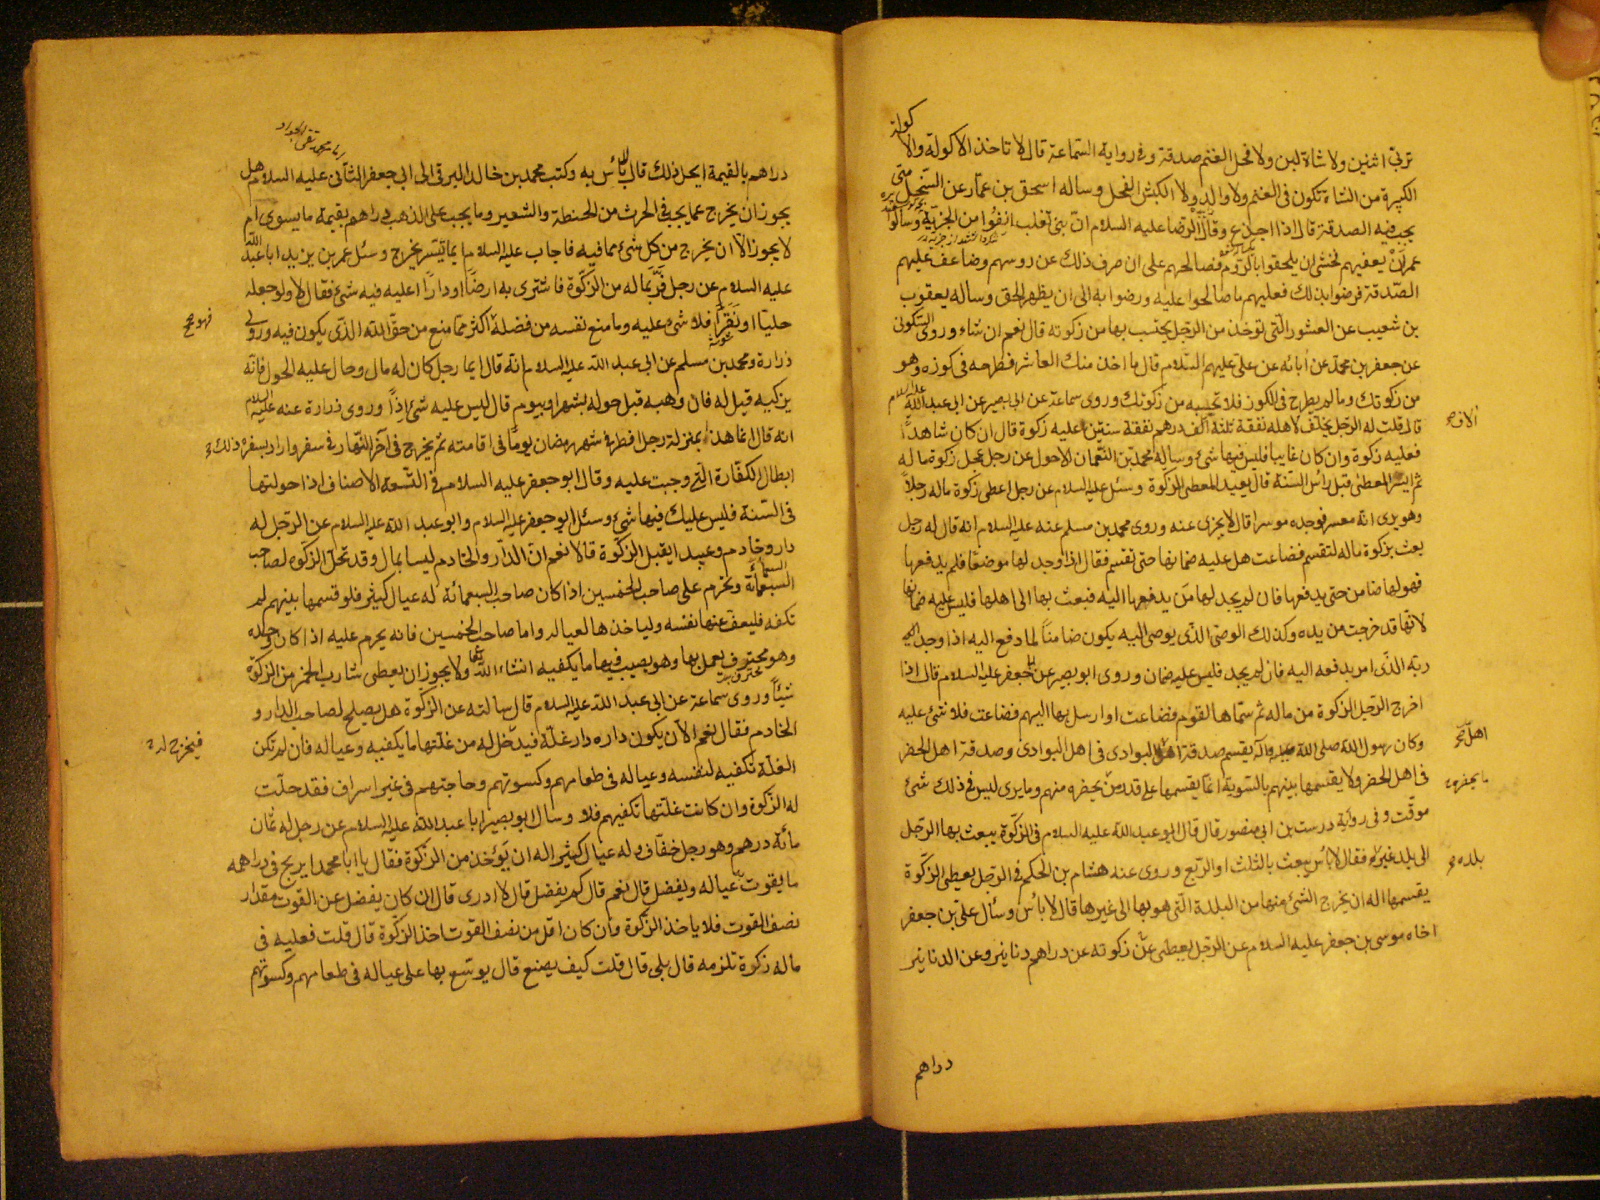 كولة
تربى اثنين ولا شاة لبن ولا فحل الغنم صدقة وفي رواية السماعة قال لا تاخذ الاكولة والا
الكبيرة من الشاة تكون في الغنم ولا والد ولا الكبش الفحل وساله اسحق بن عمار عن السخل متى
يجب فيه الصدقة قال اذا اجذع وقال الرضا عليه السلام ان بني تغلب انفوا من الجزية وسالوا
عمر ان يعفيهم فخشى ان يلحقوا بالروم فصالحهم على ان صرف ذلك عن روسهم وضاعف عليهم
الصدقة فرضوا بذلك فعليهم ما صالحوا عليه ورضوا به الى ان يظهر الحق وساله يعقوب
بن شعيب عن العشور التي تؤخذ من الرجل يحتسب بها من زكوته قال نعم ان شاء وروى السكونى
عن جعفر بن محمد عن ابائه عن على عليهم السلام قال ما اخذ منك العاشر فطرحه في كوزه وهو
من زكوتك وما لم يطرح في الكوز فلا تحتسبه من زكوتك وروى سماعة عن ابى بصير عن ابى عبد الله عليه السلام
قال قلت له الرجل يخلف لاهله نفقة ثلثة الف درهم نفقة سنتين عليه زكوة قال ان كان شاهدا
الاف
فعليه زكوة وان كان غايبا فليس فيها شئ وساله محمد بن النعمان الاحول عن رجل عجل زكوة ماله
ثم ايسر المعطى قبل راس السنة قال يعيد المعطى الزكوة وسئل عليه السلام عن رجل اعطى زكوة ماله رجلا
وهو يرى انه معسر فوجده موسرا قال لا يجزى عنه وروى محمد بن مسلم عنه عليه السلام انه قال له رجل
بعث بزكوة ماله لتقسم فضاعت هل عليه ضمانها حتى تقسم فقال اذا وجد لها موضعا فلم يدفعها
فهو لها ضامن حتى يدفعها فان لم يجد لها من يدفعها اليه فبعث بها الى اهلها فليس عليه ضمانها
لانها قد خرجت من يده وكذلك الوصى الذى يوصى اليه يكون ضامنا لما دفع اليه اذا وجد
ربه الذى امر بدفعه اليه فان لم يجد فليس عليه ضمان وروى ابو بصير عن ابى جعفر عليه السلام قال اذا
اخرج الرجل الزكوة من ماله ثم سماها لقوم فضاعت او ارسل بها اليهم فضاعت فلا شئ عليه
وكان رسول الله صلى الله عليه واله يقسم صدقة اهل البوادى في اهل البوادى وصدقة اهل الحضر
اهل
في اهل الحضر ولا يقسمها بينهم بالتسوية انما يقسمها على قدر من يحضره منهم وما يرى ليس في ذلك شئ
ما يحضره
موقت وفي رواية درست بن ابى منصور قال قال ابو عبد الله عليه السلام في الزكوة يبعث بها الرجل
الى بلد غيره فقال لا باس يبعث بالثلث او الربع وروى عنه هشام بن الحكم في الرجل يعطى الزكوة
بلده
يقسمها اله ان يخرج الشئ منها من البلدة التي هو بها الى غيرها قال لا باس وسأل على بن جعفر
اخاه موسى بن جعفر عليه السلام عن الرجل يعطى عن زكوته عن دراهم دنانير وعن الدنانير
دراهم
دراهم بالقيمة ايحل ذلك قال لا بأس به وكتب محمد بن خالد البرقى الى ابى جعفر الثانى عليه السلام هل
يجوز ان يخرج مما يجب في الحرث من الحنطة والشعير وما يجب على الذهب دراهم بقيمة ما يسوى ام
لا يجوز الا ان يخرج من كل شئ مما فيه فاجاب عليه السلام ايما تيسر يخرج وسئل عمر بن يزيد ابا عبد الله
عليه السلام عن رجل فر بماله من الزكوة فاشترى به ارضا او دارا اعليه فيه شئ فقال لا ولو جعله
حليا او نقرا فلا شئ عليه وما منع نفسه من فضله اكثر مما منع من حق الله الذى يكون فيه وروى
فهو
زرارة ومحمد بن مسلم عن ابى عبد الله عليه السلام انه قال ايما رجل كان له مال وحال عليه الحول فانه
يزكيه قيل له فان وهبه قبل حوله بشهر او بيوم قال ليس عليه شئ اذا وروى زرارة عنه عليه السلام
انه قال انما هذا بمنزلة رجل افطر في شهر رمضان يوما في اقامته ثم يخرج في آخر النهار في سفر واراد بسفره ذلك
ابطال الكفارة التي وجبت عليه وقال ابو جعفر عليه السلام في التسعة الاصناف اذا حولتها
في السنة فليس عليك فيها شئ وسئل ابو جعفر عليه السلام وابو عبد الله عليه السلام عن الرجل له
دار وخادم وعبد ايقبل الزكوة قالا نعم ان الدار والخادم ليسا بمال وقد تحل الزكوة لصاحب
السبعمائة وتحرم على صاحب الخمسين اذا كان صاحب السبعمائة له عيال كثير فلو قسمها بينهم لم
تكفه فليعف عنها نفسه ولياخذها لعياله واما صاحب الخمسين فانه يحرم عليه اذا كان وحده
وهو محترف يعمل بها وهو يصيب فيها ما يكفيه انشاء الله تعالى ولا يجوز ان يعطى شارب الخمر من الزكوة
شيئا وروى سماعة عن ابى عبد الله عليه السلام قال سالته عن الزكوة هل يصلح لصاحب الدار و
الخادم فقال نعم الا ان يكون داره دار غلة فيدخل له من غلتها ما يكفيه وعياله فان لم تكن
فيخرج له
الغلة تكفيه لنفسه وعياله في طعامهم وكسوتهم وحاجتهم في غير اسراف فقد حلت
له الزكوة وان كانت غلتها تكفيهم فلا وسأل ابو بصير ابا عبد الله عليه السلام عن رجل له ثمان
مائة درهم وهو رجل خفاف وله عيال كثير اله ان يؤخذ من الزكوة فقال يا ابا محمد ايربح في دراهمه
ما يقوت به عياله ويفضل قال نعم قال كم يفضل قال لا ادرى قال ان كان يفضل عن القوت مقدار
نصف القوت فلا ياخذ الزكوة وان كان اقل من نصف القوت اخذ الزكوة قال قلت فعليه في
ماله زكوة تلزمه قال بلى قال قلت كيف يصنع قال يوسع بها على عياله في طعامهم وكسوتهم